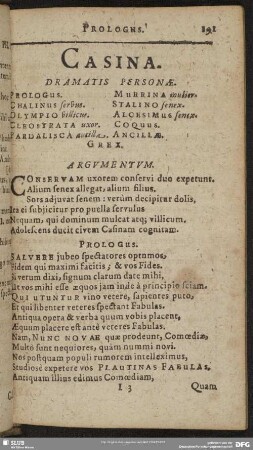 PROLOGUS.
191
CASINA.
DRAMATIS PERSONÆ.
PROLOGUS. MURRINA mulier.
CHALINUS servus. STALINO senex.
OLYMPIO villicus. ALCESIMUS senex.
CLEOSTRATA uxor. COQUUS.
PARDALISCA ancilla. ANCILLÆ.
GREX.
ARGVMENTVM.
CONSERVAM uxorem conservi duo expetunt.
Alium senex allegat, alium filius.
Sors adjuvat senem: verùm decipitur dolis,
Ita ei subjicitur pro puella servulus
Nequam, qui dominum mulcat atq; villicum.
Adolescens ducit civem Casinam cognitam.
PROLOGUS.
SALVERE jubeo spectatores optumos,
Fidem qui maximi facitis; & vos Fides.
Si verum dixi, signum clarum date mihi,
Ut vos mihi esse æquos jam inde à principio sciam.
QUI UTUNTUR vino vetere, sapientes puto,
Et qui libenter veteres spectant Fabulas.
Antiqua opera & verba quum vobis placent,
Æquum placere est antè veteres Fabulas.
Nam, NUNC NOVAE quæ prodeunt, Comœdiæ,
Multò sunt nequiores, quàm nummi novi.
Nos postquam populi rumorem intelleximus,
Studiosè expetere vos PLAUTINAS FABULAS,
Antiquam illius edimus Comœdiam,
I 3 Quam
SLUB
DFG